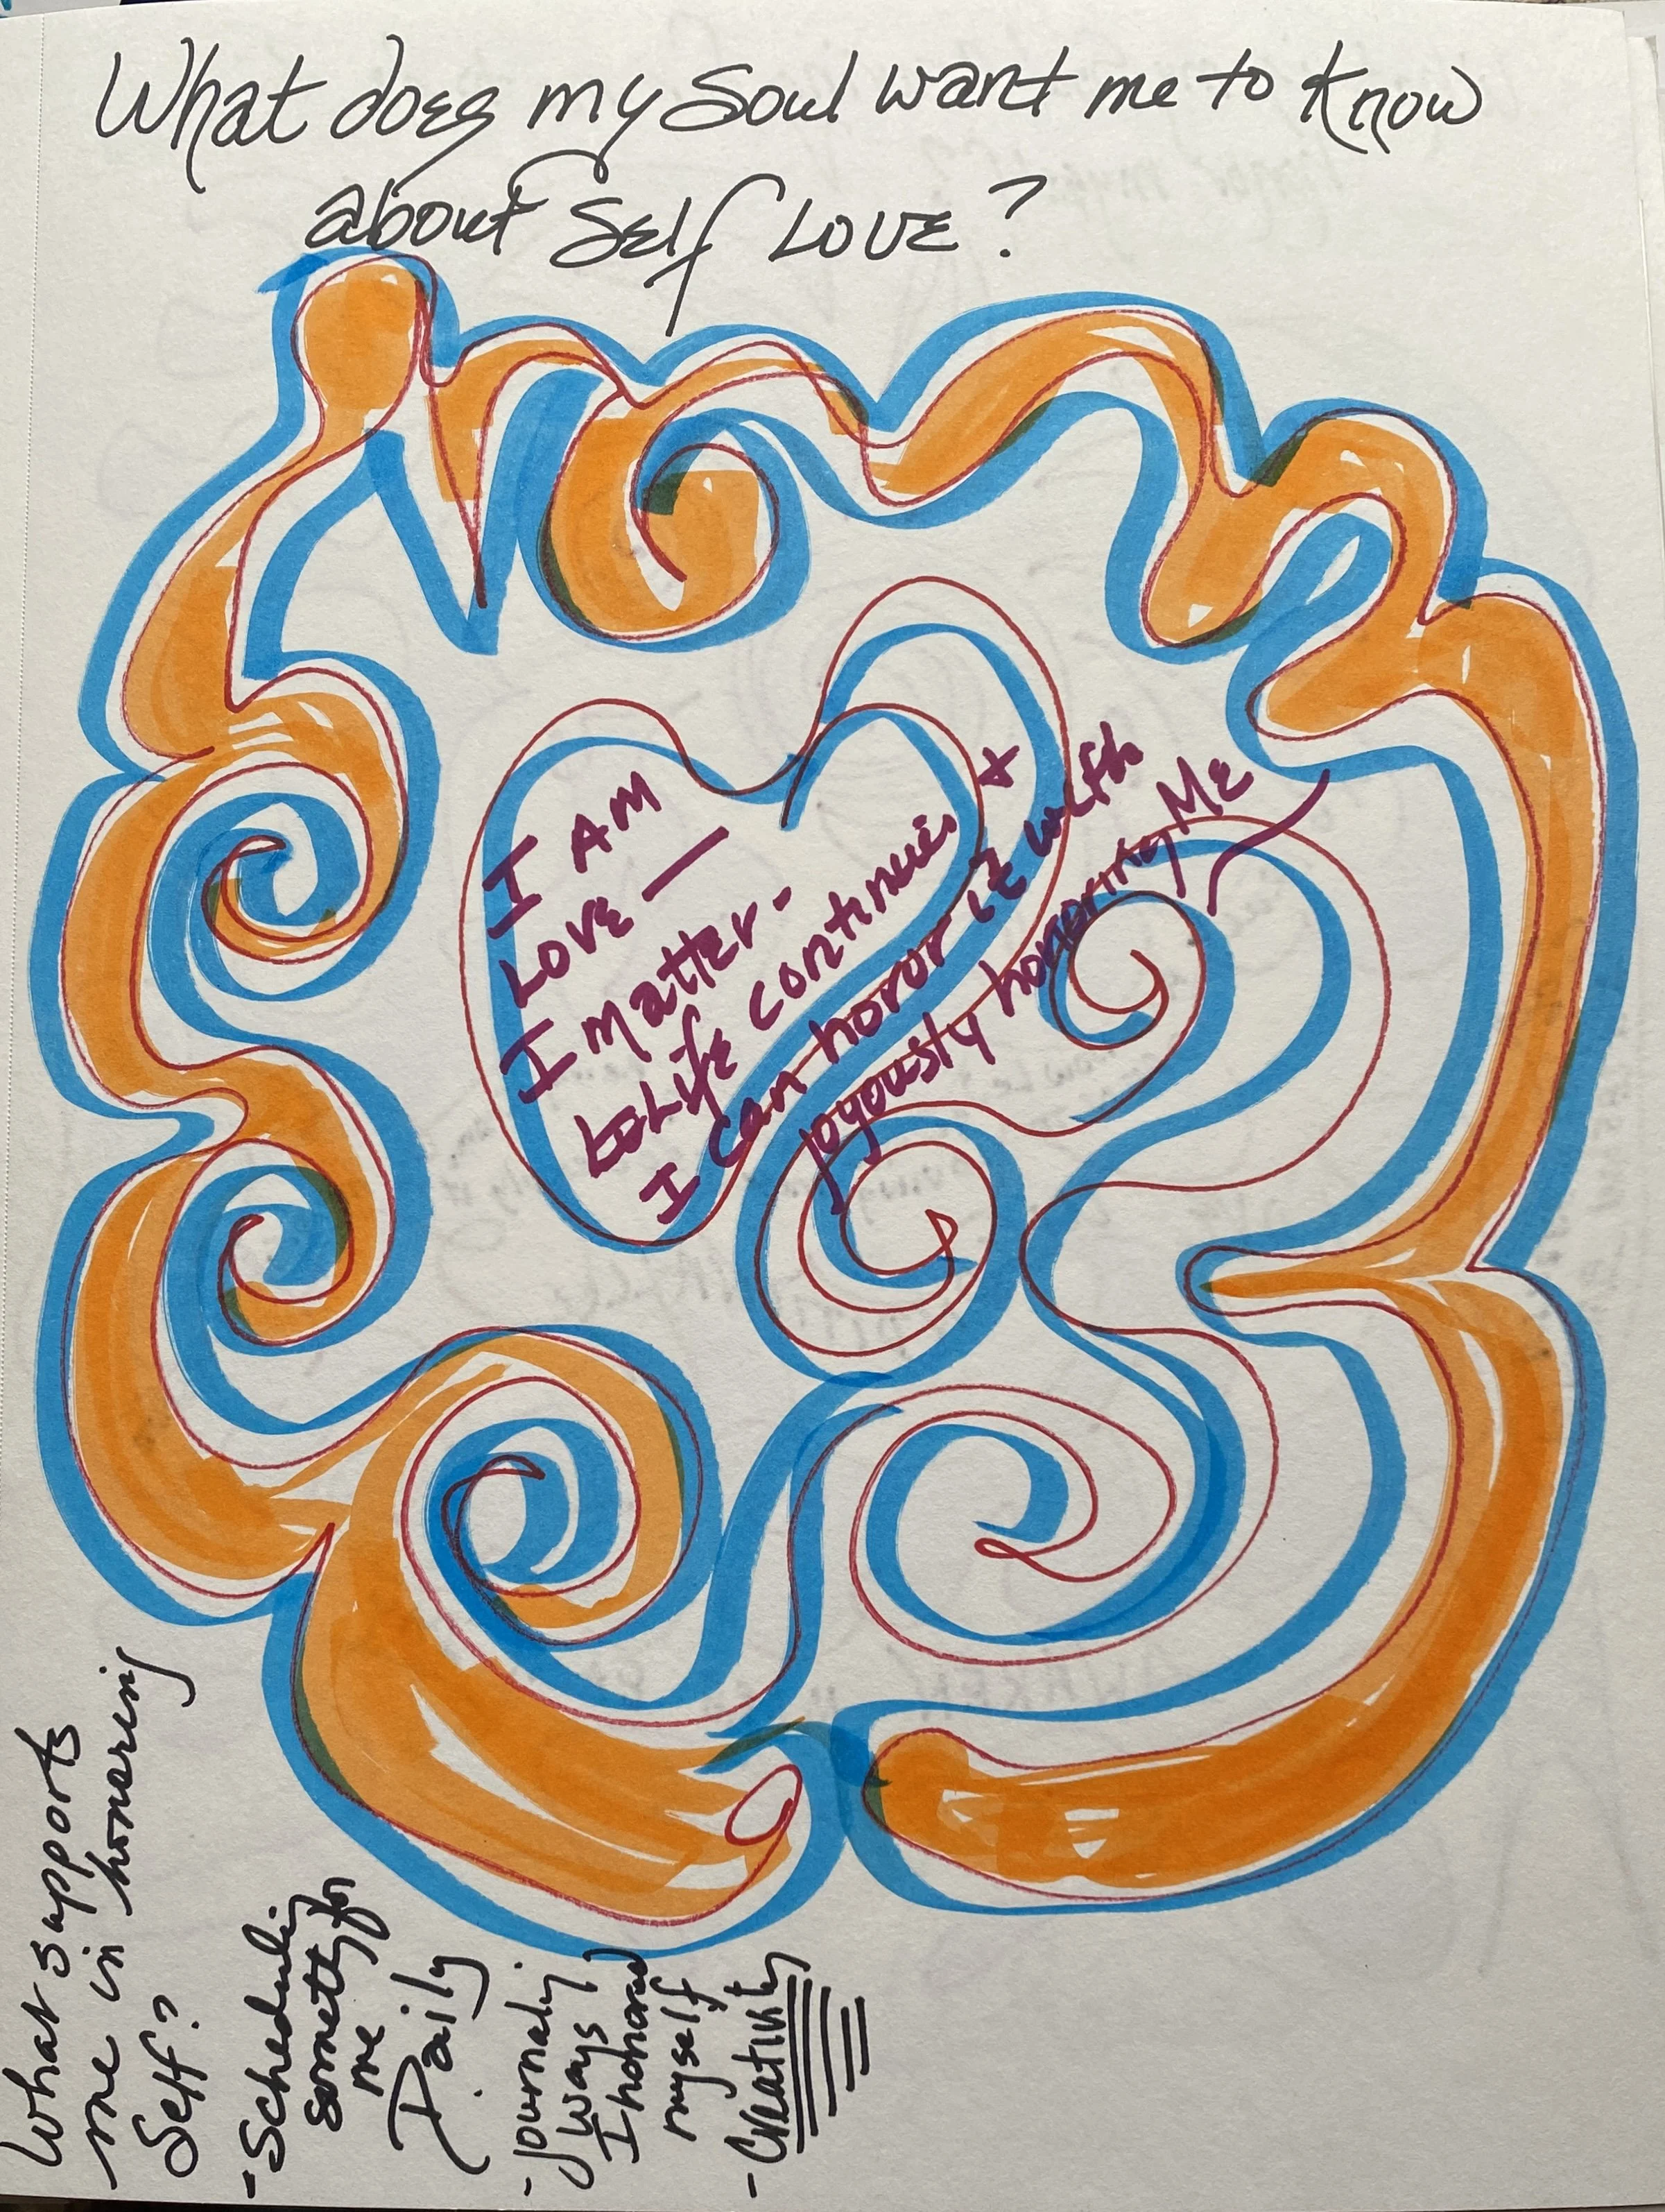 What does my Soul want me to know
about Self Love?
I AM
Love —
I matter -
Life continues +
I can honor it with
joyously honoring Me
What supports
me in honoring
Self?
- Scheduling
something for
me
Daily
- journaling
ways
I honored
myself
- Creativity